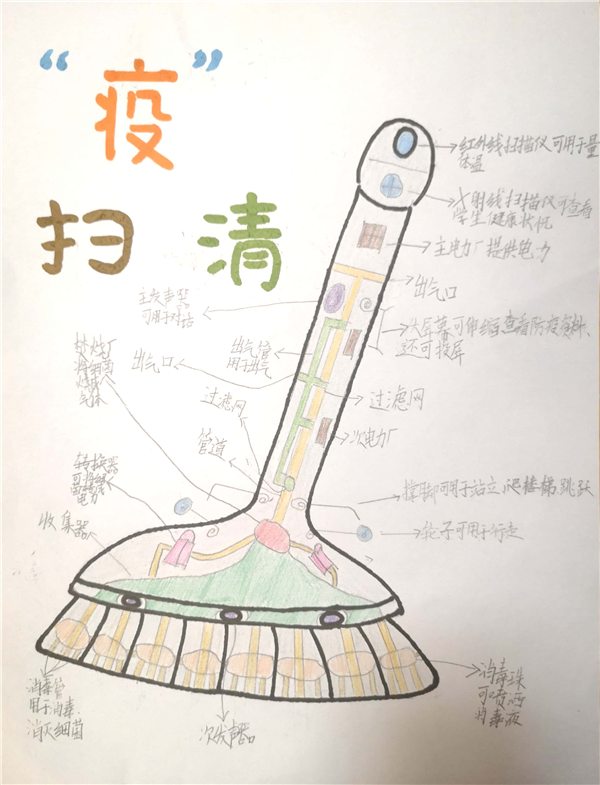 “疫”
扫 清
红外线扫描仪可用于量
体温
X射线扫描仪可查看
学生健康状况
主电力厂提供电力
出气口
主发声器
可用于对话
大屏幕可伸缩查看防疫资料、
还可投屏
出气管
用于出气
出气口
过滤网
过滤网
次电力厂
管道
焚烧厂
将细菌
气体
转换器
电力
收集器
撑脚可用于站立、爬楼梯、跳跃
轮子可用于行走
消毒管
用于消毒、
消灭细菌
次发声口
消毒珠
可喷洒
消毒液